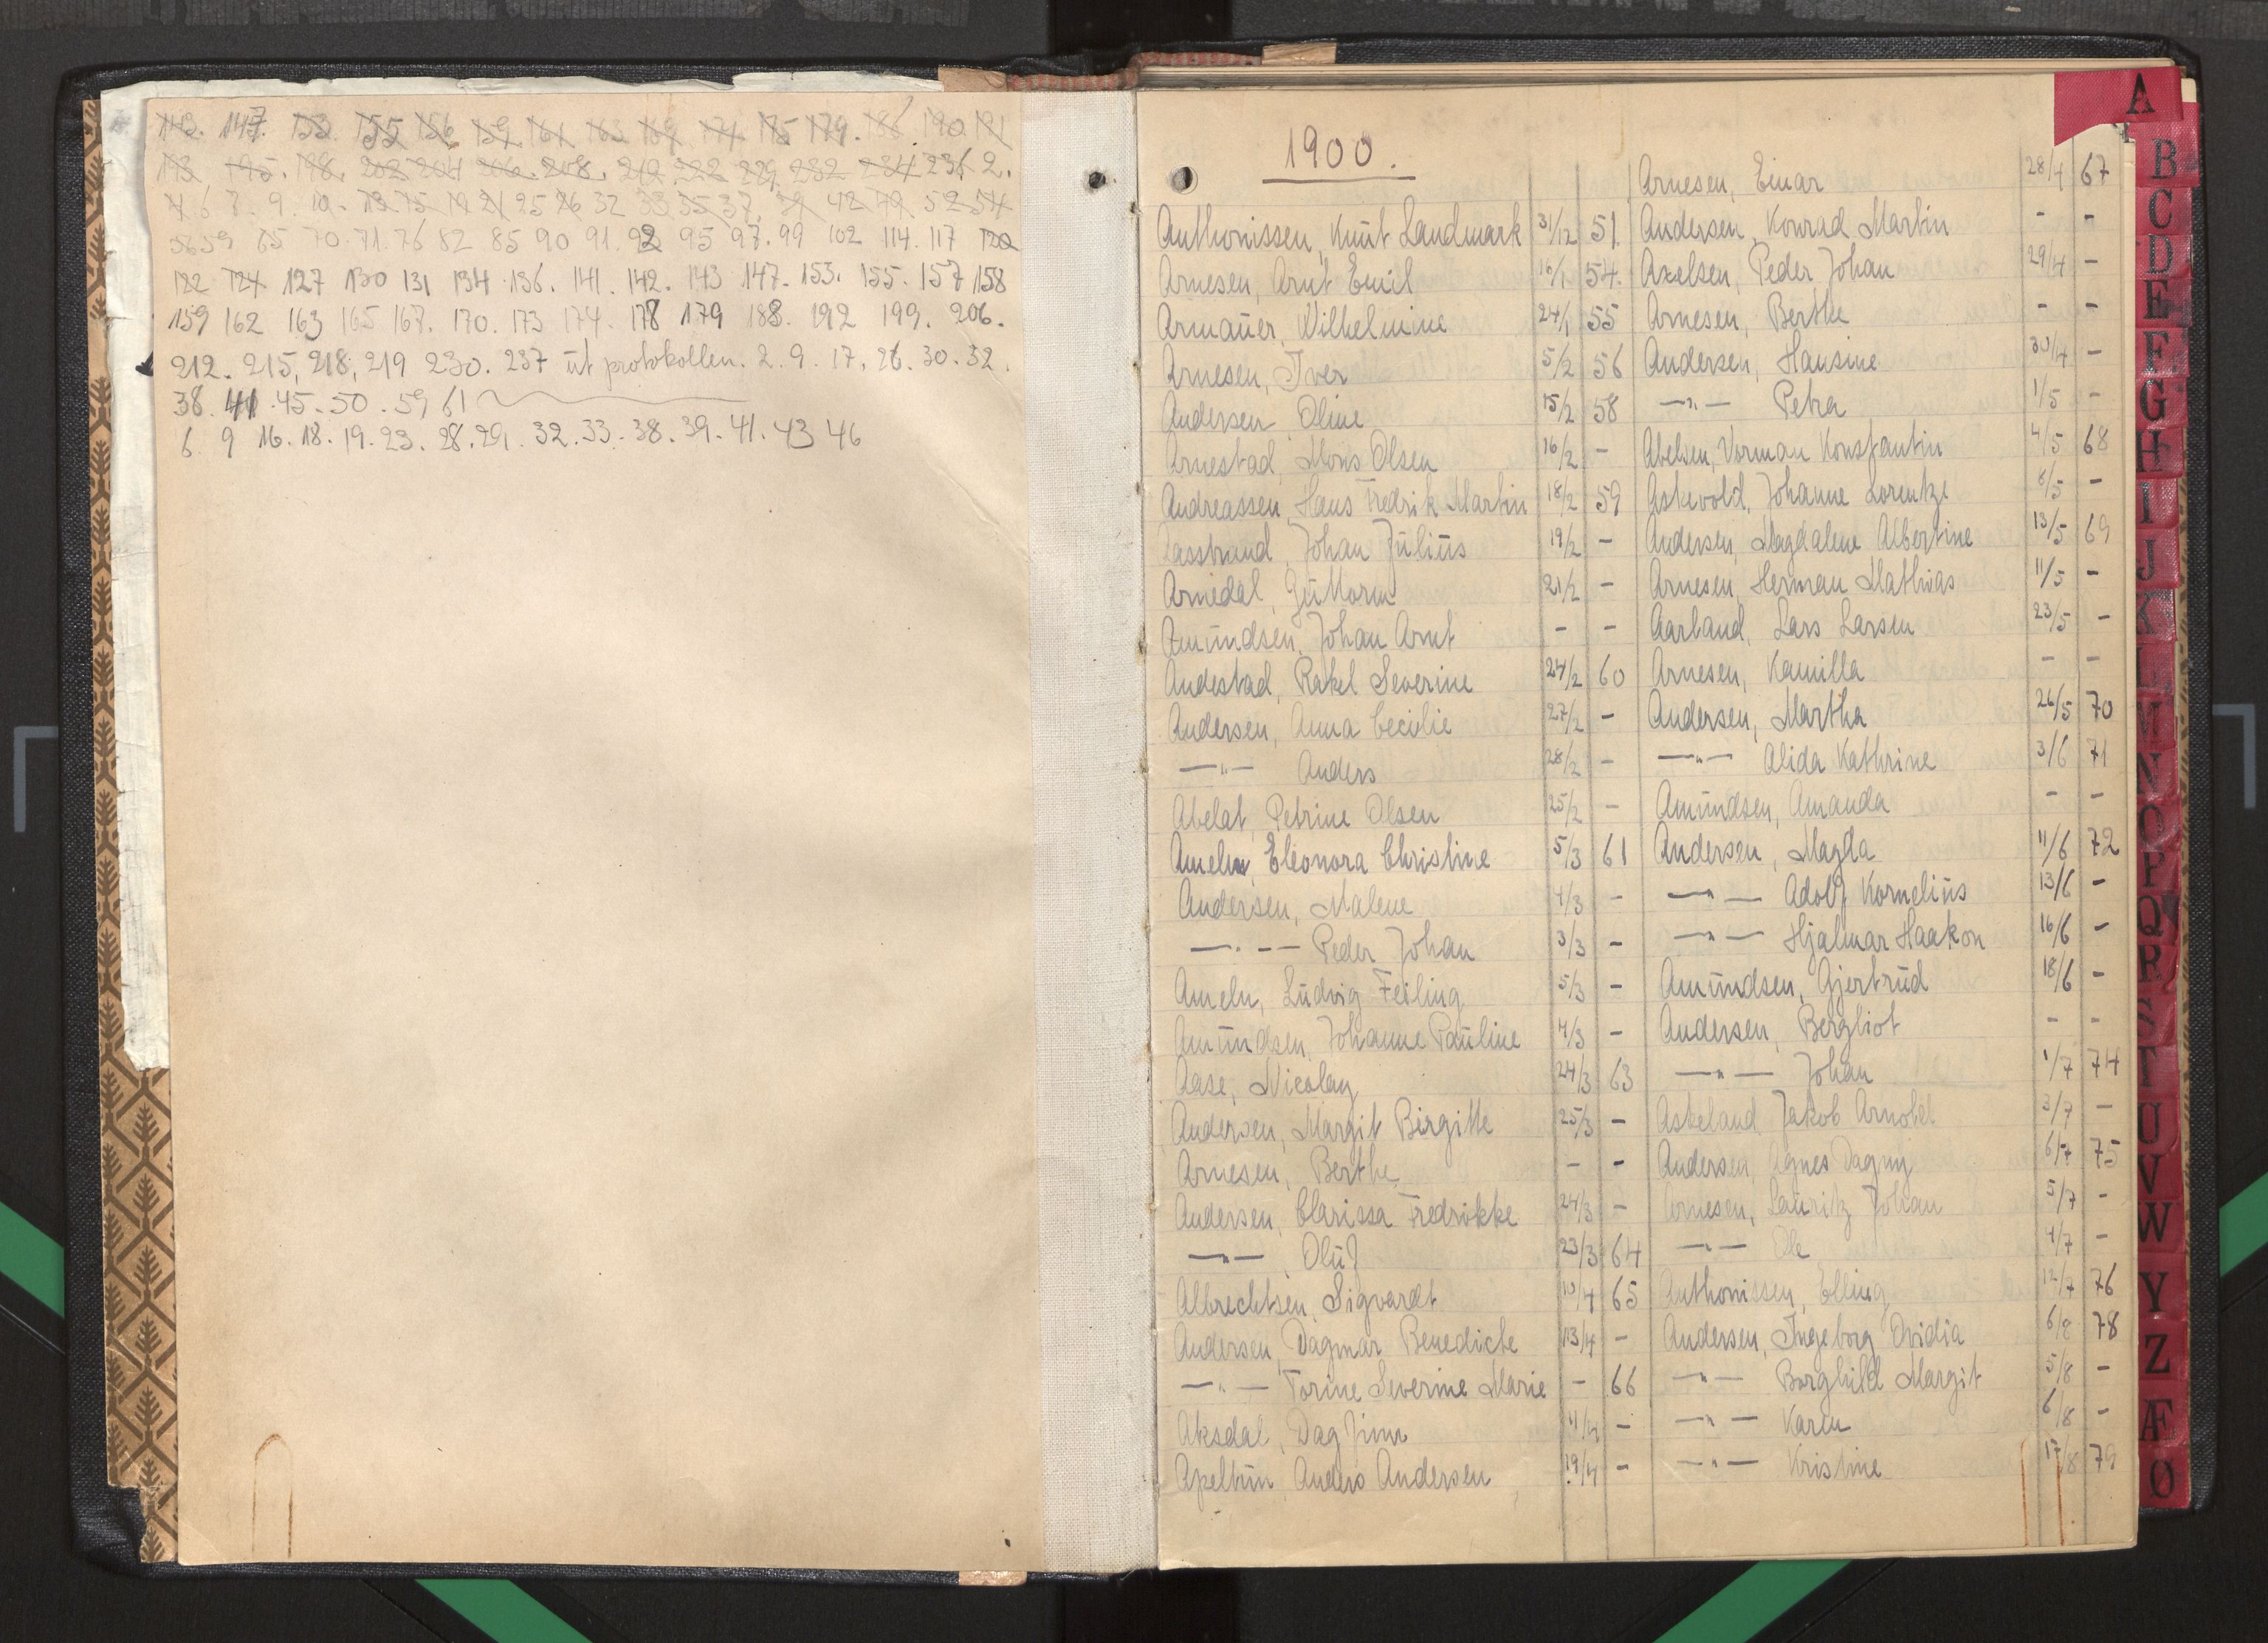 143. 147. 153. 155 156 159 161 163 169 174 175 179. 186 190. 191
193 195. 198. 202 204 206. 208. 212 222 229 232 234 236 2.
4 6 7. 9. 10. 13 15 19 21 25 26 32 33 35 37. 39 42 49 52 54
56 59 65 70. 71. 76 82 85 90 91. 92 95 97. 99 102 114. 117 120
122 124 127 130 131 134 136. 141. 142. 143 147. 153. 155. 157 158
159 162 163 165 167. 170. 173 174. 178 179 188. 192 199. 206.
212. 215, 218, 219 230. 237 ut protokollen. 2. 9. 17. 26. 30. 32.
38. 41. 45. 50. 59 61
6. 9 16. 18. 19. 23. 28. 29. 32. 33. 38. 39. 41. 43 46
1900.
Anthonissen, Knut Landmark 31/12 51.
Arnesen, Arnt Emil 16/1 54.
Armauer, Wilhelmine 24/1 55
Arnesen, Iver 5/2 56
Andersen, Oline 15/2 58
Arnestad, Mons Olsen 16/2 -
Andreassen, Hans Fredrik Martin 18/2 59
Aasstrand, Johan Julius 19/2 -
Armedal, Guttorm 21/2 -
Amundsen, Johan Arnt - -
Andestad, Rakel Severine 24/2 60
Andersen, Anna Cecilie 27/2 -
—"— Anders 28/2 -
Abelat, Petrine Olsen 25/2 -
Ameln, Eleonora Christine 5/3 61
Andersen, Malene 4/3 -
—"— Peder Johan 3/3 -
Ameln, Ludvig Feiling 5/3 -
Amundsen, Johanne Pauline 4/3 -
Aase, Nicolay 24/3 63
Andersen, Margit Birgitte 25/3 -
Arnesen, Berthe - -
Andersen, Clarissa Fredrikke 24/3 -
—"—, Oluf 23/3 64
Albrechtsen, Sigvardt 10/4 65
Andersen, Dagmar Benedicte 13/4 -
—"— Torine Severine Marie - 66
Aksdal, Dagfinn 11/4 -
Apeltun, Anders Andersen 19/4 -
Arnesen, Einar 28/4 67
Andersen, Konrad Martin - -
Axelsen, Peder Johan 29/4 -
Arnesen, Berthe - -
Andersen, Hansine 30/4 -
—"— Petra 1/5 -
Abelsen, Norman Konstantin 4/5 68
Askevold, Johanne Lorentze 8/5 -
Andersen, Magdalene Albertine 13/5 69
Arnesen, Herman Mathias 11/5 -
Aarland, Lars Larsen 23/5 -
Arnesen, Kamilla - -
Andersen, Martha 26/5 70
—"— Alida Kathrine 3/6 71
Amundsen, Amanda - -
Andersen, Magda 11/6 72
—"— Adolf Kornelius 13/6 -
—"— Hjalmar Haakon 16/6 -
Amundsen, Gjertrud 18/6 -
Andersen, Bergliot - -
—"— Johan 1/7 74
Askeland, Jakob Arnold 3/7 -
Andersen, Agnes Dagny 6/7 75
Arnesen, Lauritz Johan 5/7 -
—"— Ole 4/7 -
Anthonissen, Elling 12/7 76
Andersen, Ingeborg Ovidia 6/8 78
—"— Borghild Margit 5/8 -
—"— Karen 6/8 -
—"— Kristine 17/8 79
A
B
C
D
E
F
G
H
I
J
K
L
M
N
O
P
Q
R
S
T
U
V
W
Y
Z
Æ
Ø